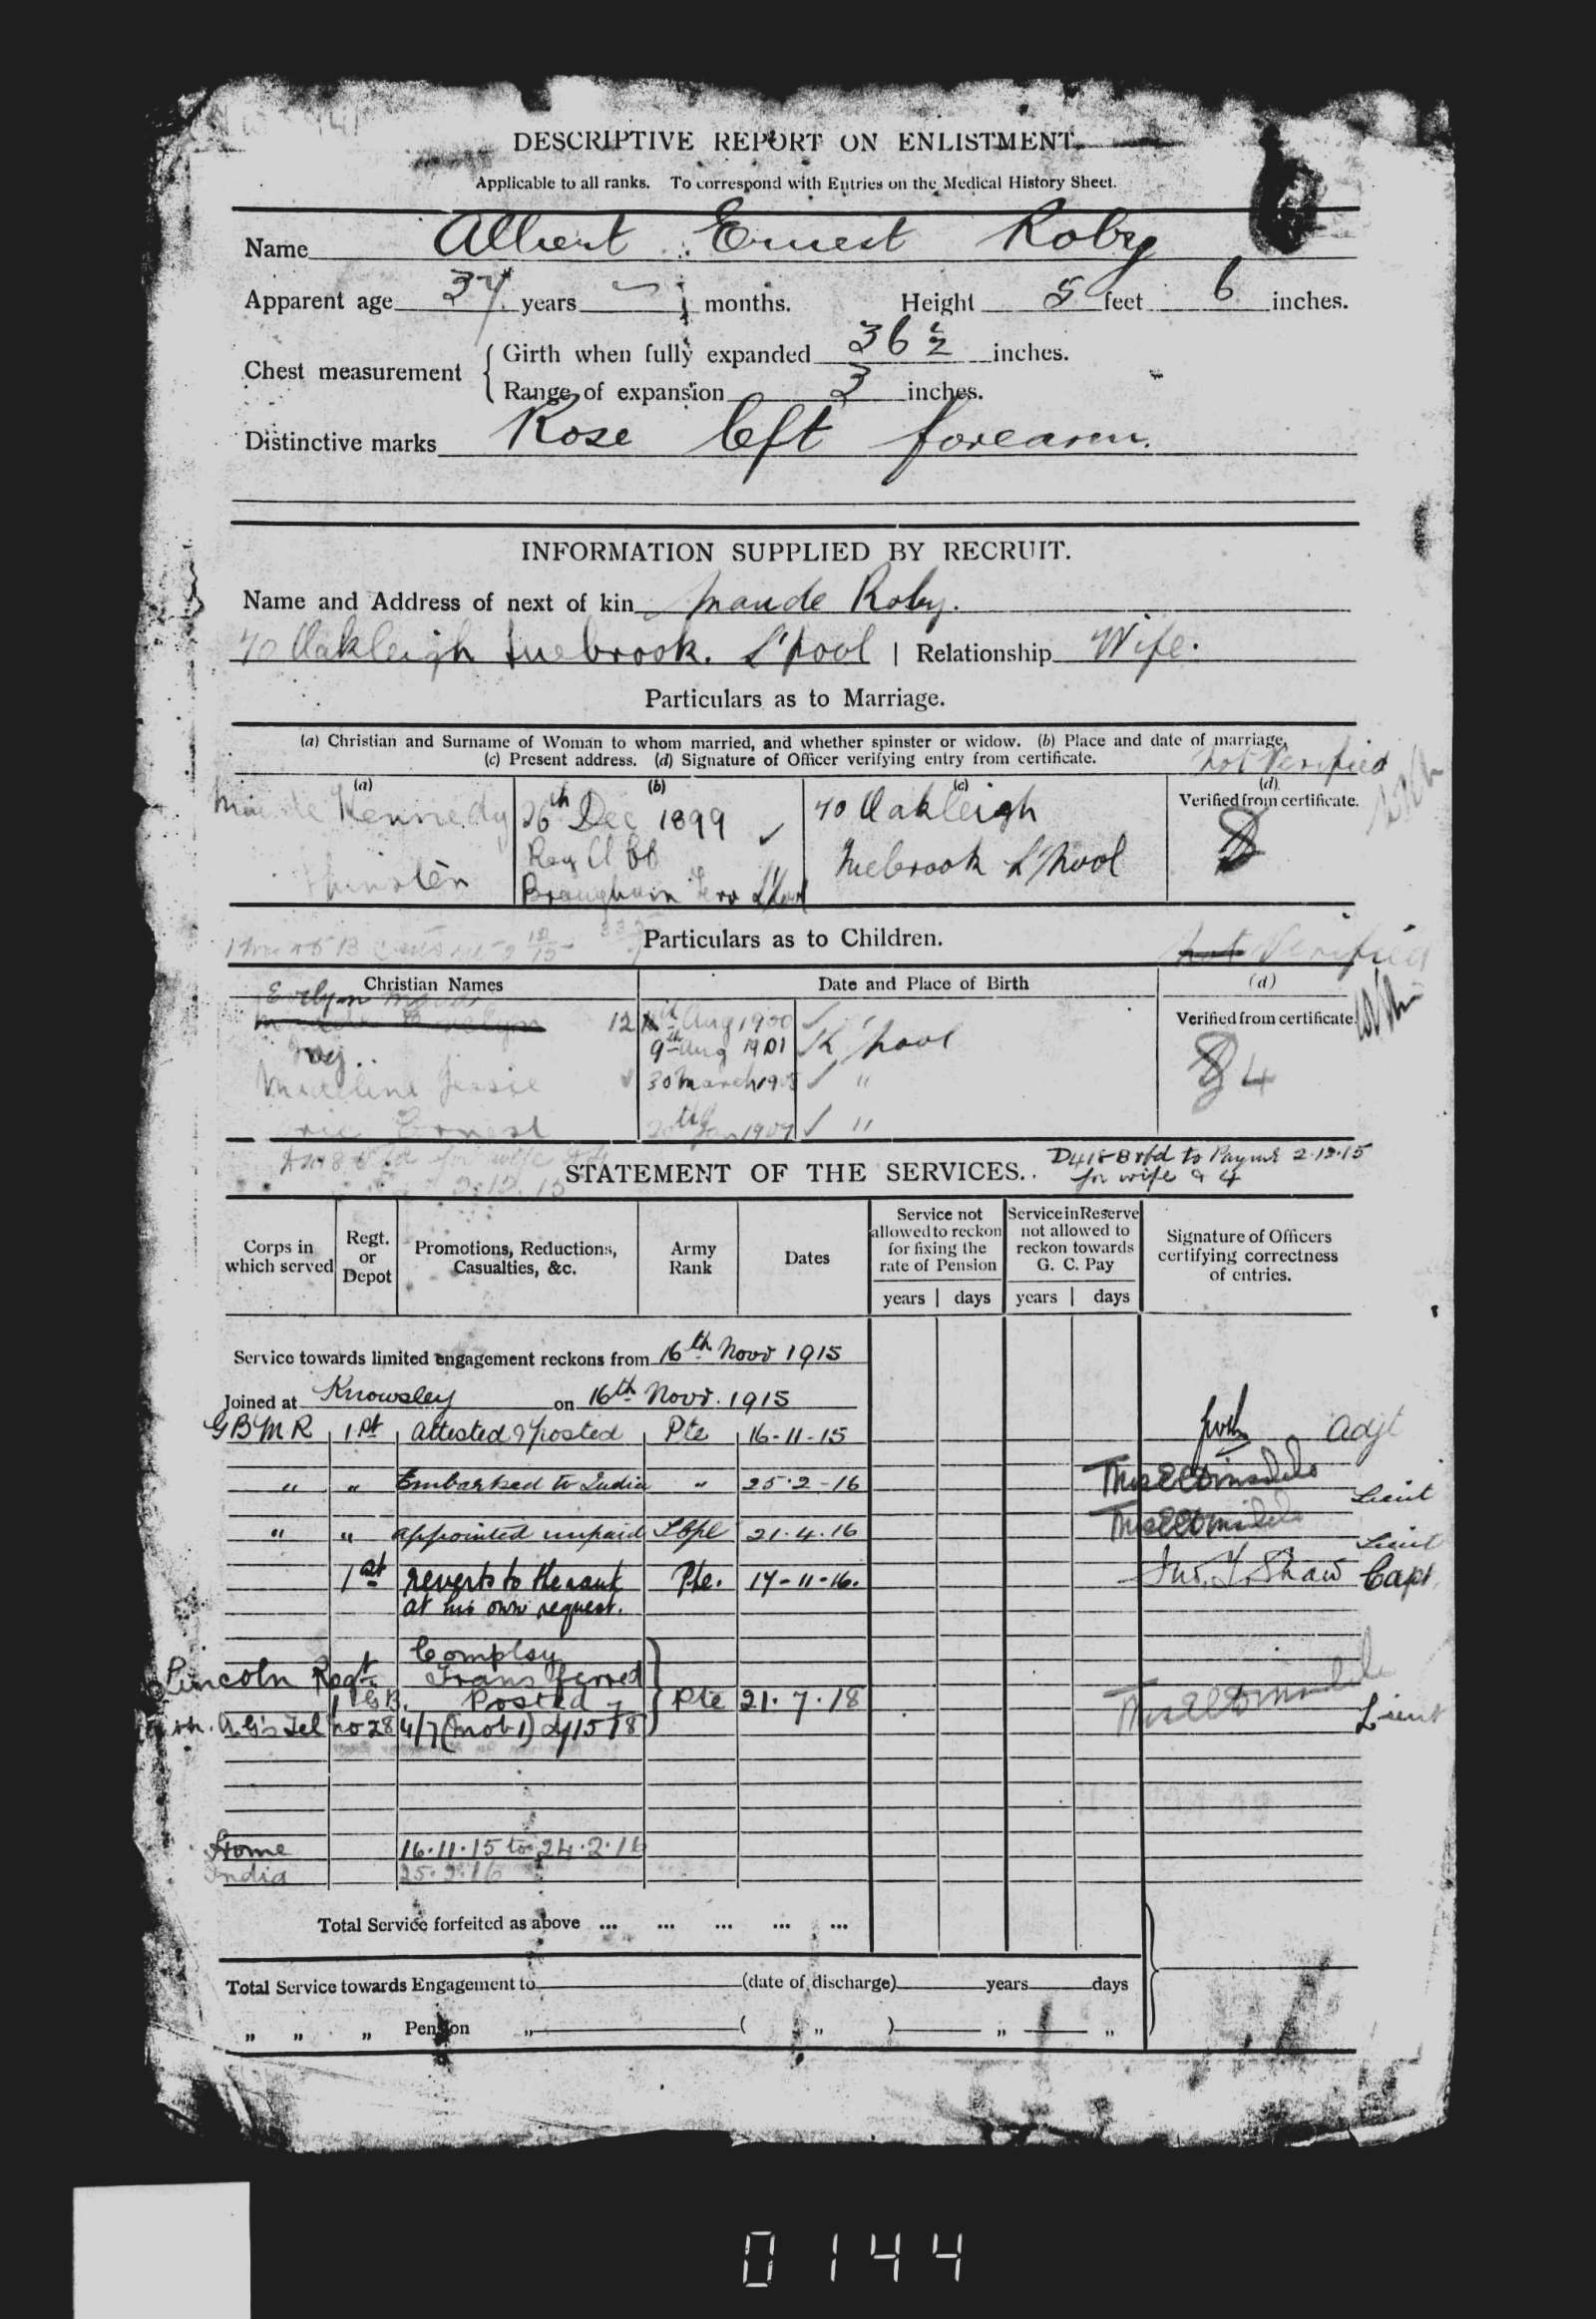 DESCRIPTIVE REPORT ON ENLISTMENT.
Applicable to all ranks. To correspond with Entries on the Medical History Sheet.
Name Albert Ernest Roby
Apparent age 34 years months. Height 5 feet 6 inches.
Chest measurement { Girth when fully expanded 36 1/2 inches.
Range of expansion 3 inches.
Distinctive marks Rose left forearm.
INFORMATION SUPPLIED BY RECRUIT.
Name and Address of next of kin Maude Roby.
70 Oakleigh Tuebrook. L'pool | Relationship Wife.
Particulars as to Marriage.
(a) Christian and Surname of Woman to whom married, and whether spinster or widow. (b) Place and date of marriage.
(c) Present address. (d) Signature of Officer verifying entry from certificate.
Not Verified
(a) (b) (c) (d)
Verified from certificate.
Maude Kennedy 26th Dec 1899 70 Oakleigh
Tuebrook L'pool
Brougham Terr L'pool
Particulars as to Children.
Not Verified
Christian Names Date and Place of Birth (d)
Verified from certificate.
Evelyn Maude
Maude Evelyn 12 Aug 1900
9th Aug 1901 L'pool
Madeline Jessie 30 March 190 "
Eric Ernest 20th Jan 1907 "
4
D418B rfd to Paymr 2.12.15
for wife & 4
2.12.15
STATEMENT OF THE SERVICES.
Corps in which served Regt. or Depot Promotions, Reductions, Casualties, &c. Army Rank Dates Service not allowed to reckon for fixing the rate of Pension Service in Reserve not allowed to reckon towards G. C. Pay Signature of Officers certifying correctness of entries.
years | days years | days
Service towards limited engagement reckons from 16th Novr 1915
Joined at Knowsley on 16th Novr. 1915
GBMR 1st attested & posted Pte 16-11-15 Adjt
" " Embarked to India " 25.2-16 Lieut
" " appointed unpaid L Cpl 21.4.16 Lieut
1st reverts to the rank Pte. 17-11-16. Jno. T. Shaw Capt.
at his own request.
Complsy
Lincoln Regt Transferred
1 GB. Posted Pte 21.7.18 Lieut
A.G's Tel no 28 4/7 (mob 1) d/15 7 8
Home 16.11.15 to 24.2.16
India 25.2.16
Total Service forfeited as above ... ... ... ... ...
Total Service towards Engagement to (date of discharge) years days
" " " Pension " ( " ) " "
0144